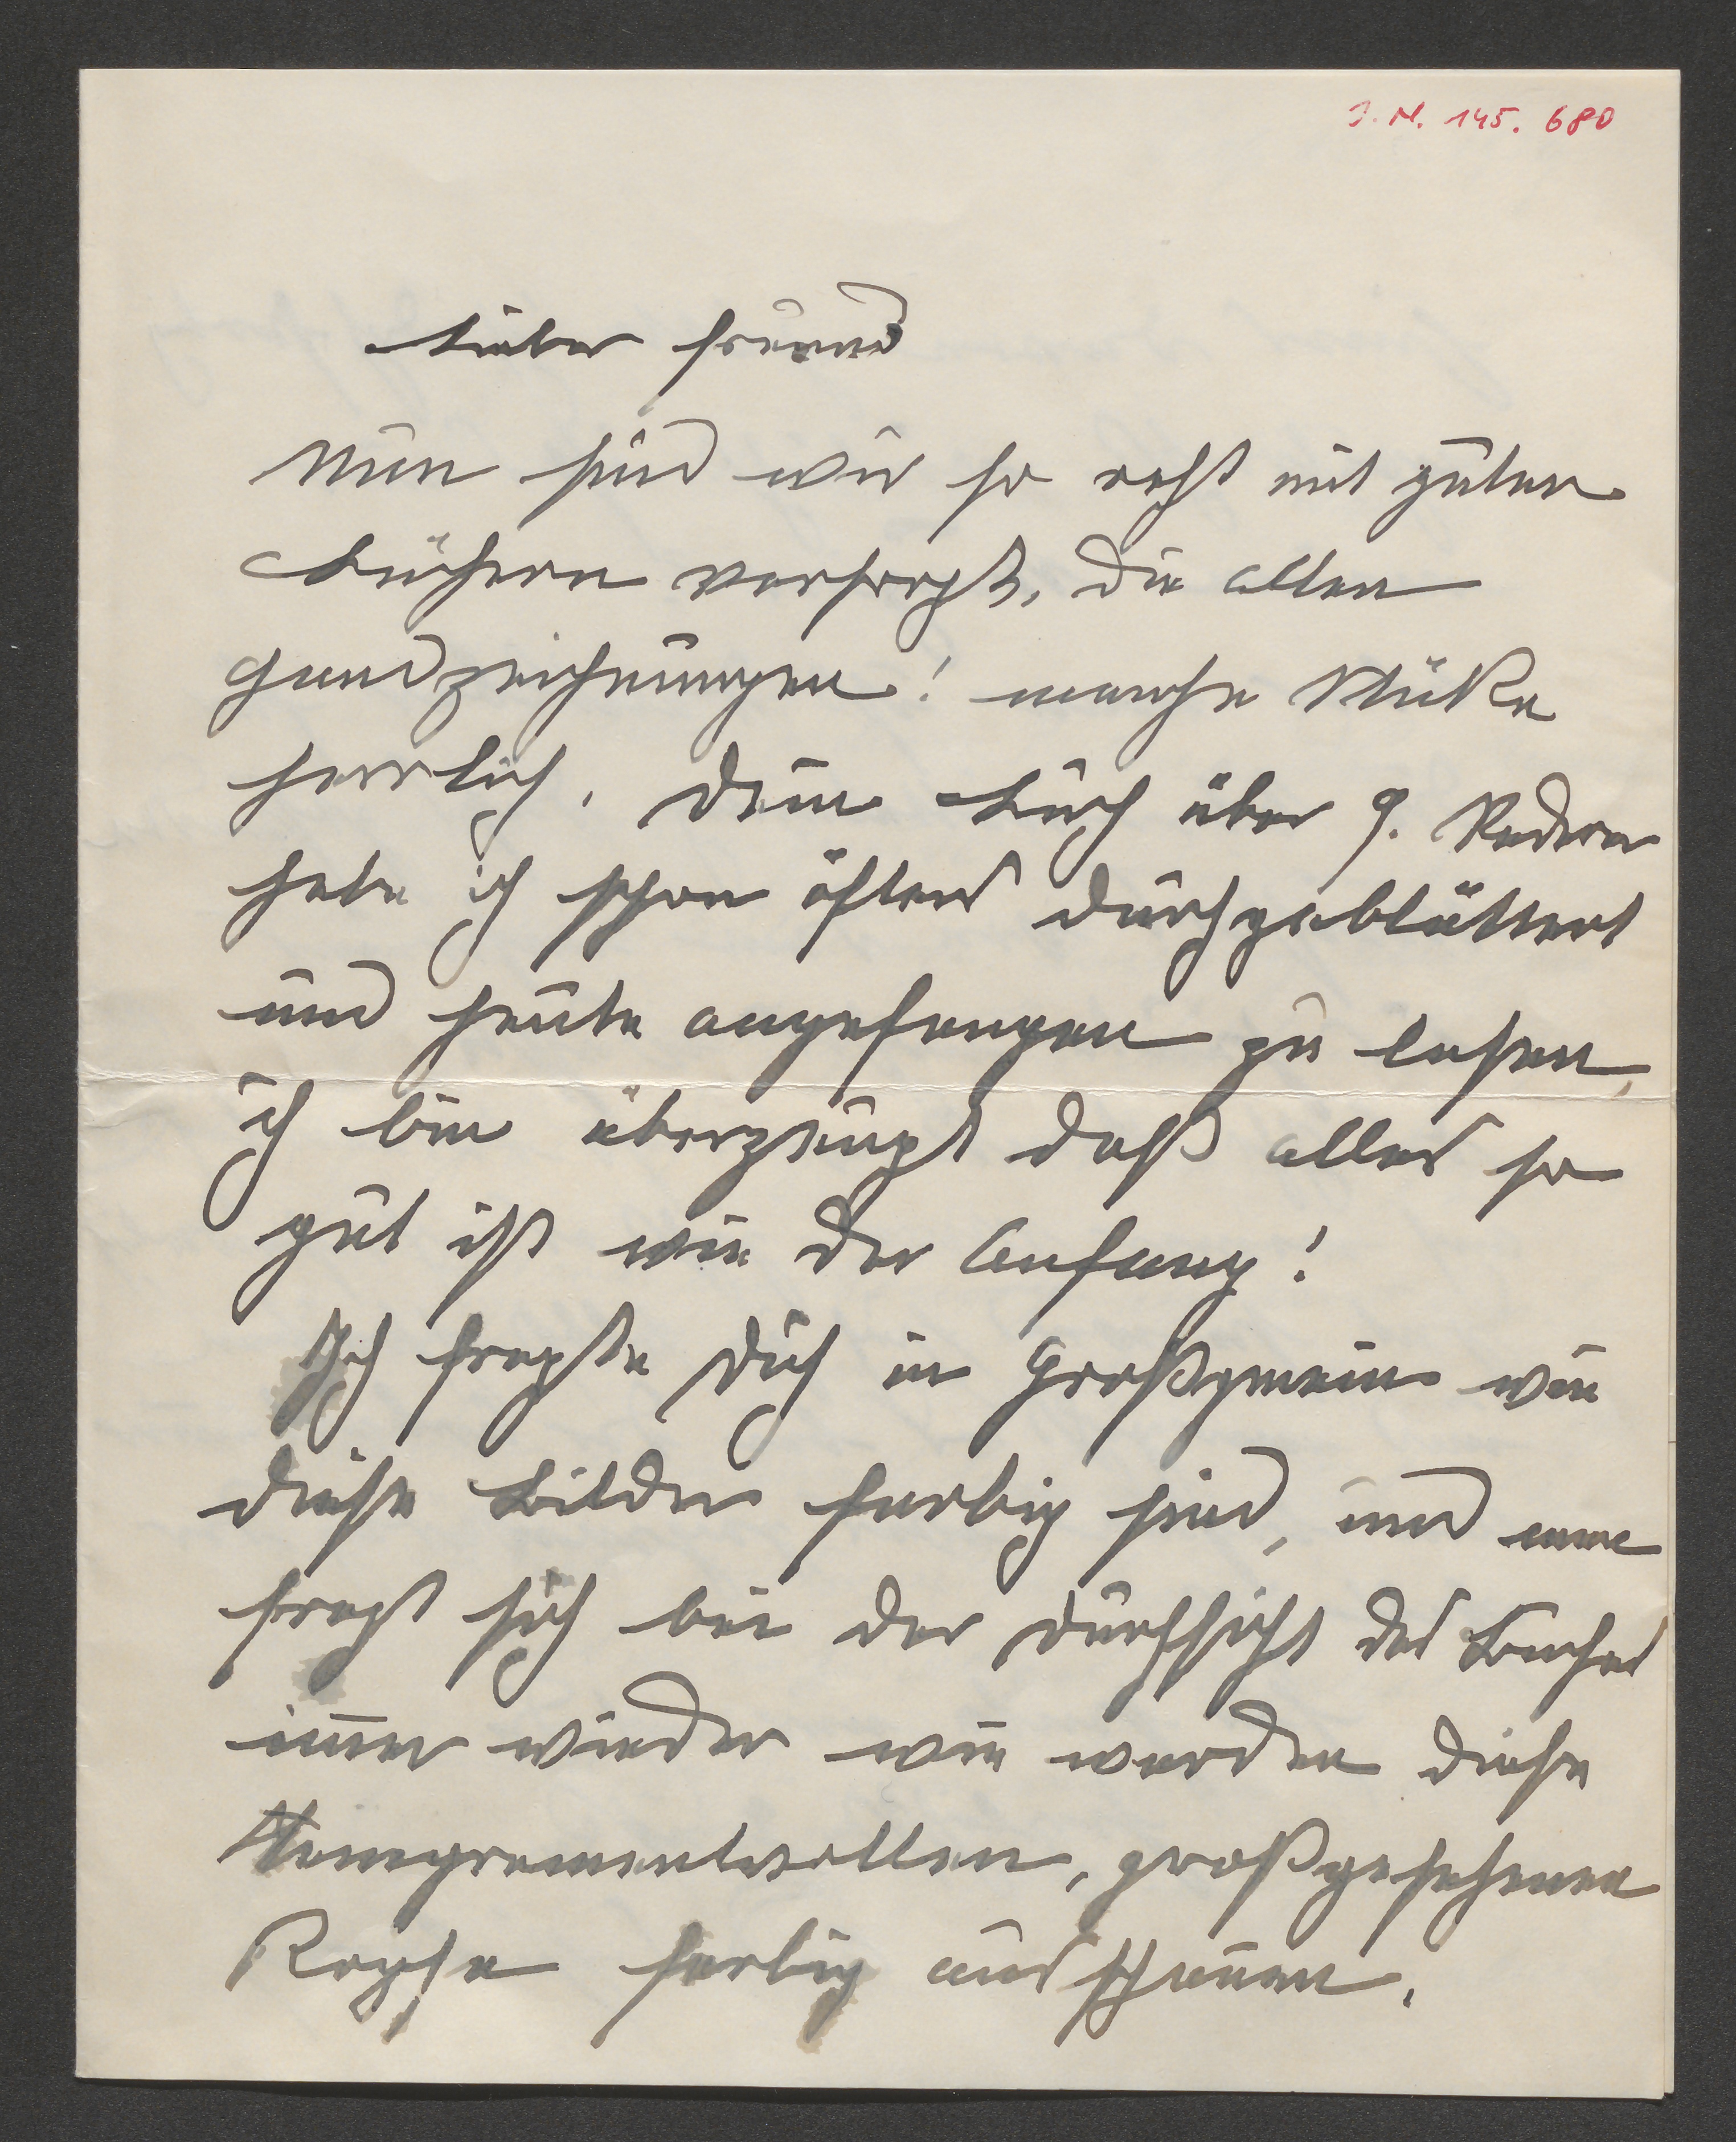 J. N. 145.680
Lieber Freund
Nun sind wir so recht mit guten
Büchern versorgt, die alten
Handzeichnungen! manche Stücke
herrlich. Dein Buch über J.
habe ich schon öfters durchgeblättert
und heute angefangen zu lesen,
ich bin überzeugt daß alles so
gut ist wie der Anfang!
Ich fragte Dich in Großgmein wie
diese Bilder farbig sind, und man
fragt sich bei der Durchsicht des Buches
im̅er wieder wie werden diese
temperamentvollen, großgesehenen
Kopfe farbig ausschauen.